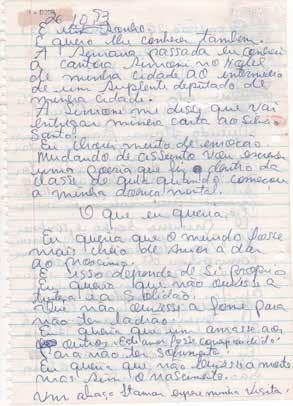 26 10 53
E meu sonho.
E quero lhe conhecer também.
A semana passada eu conheci
a cantora Simoni no Hotel
de minha cidade ao intermédio
de um suplente deputado de
minha cidade.
A Simoni me disse que vai
entregar minha carta ao Silvio
Santos.
Eu chorei muito de emoção
Mudando de assunto vou escrever
uma poesia que fiz dentro da
classe de aula quando começou
a minha doença mental.
O que eu queria.
Eu queria que o mundo fosse
mais cheio de amor a dar
ao próximo.
E isso depende de si próprio
Eu queria que não ouvisse a
tristeza e a solidão.
Que não ouvisse a fome para
não ter ladrão.
Eu queria que um amasse aos
outros. E o amor fosse correspondido
Para não ter sofrimento.
Eu queria que não houvesse a morte
mas sim o nascimento.
Um abraço Itamar espero minha visita.